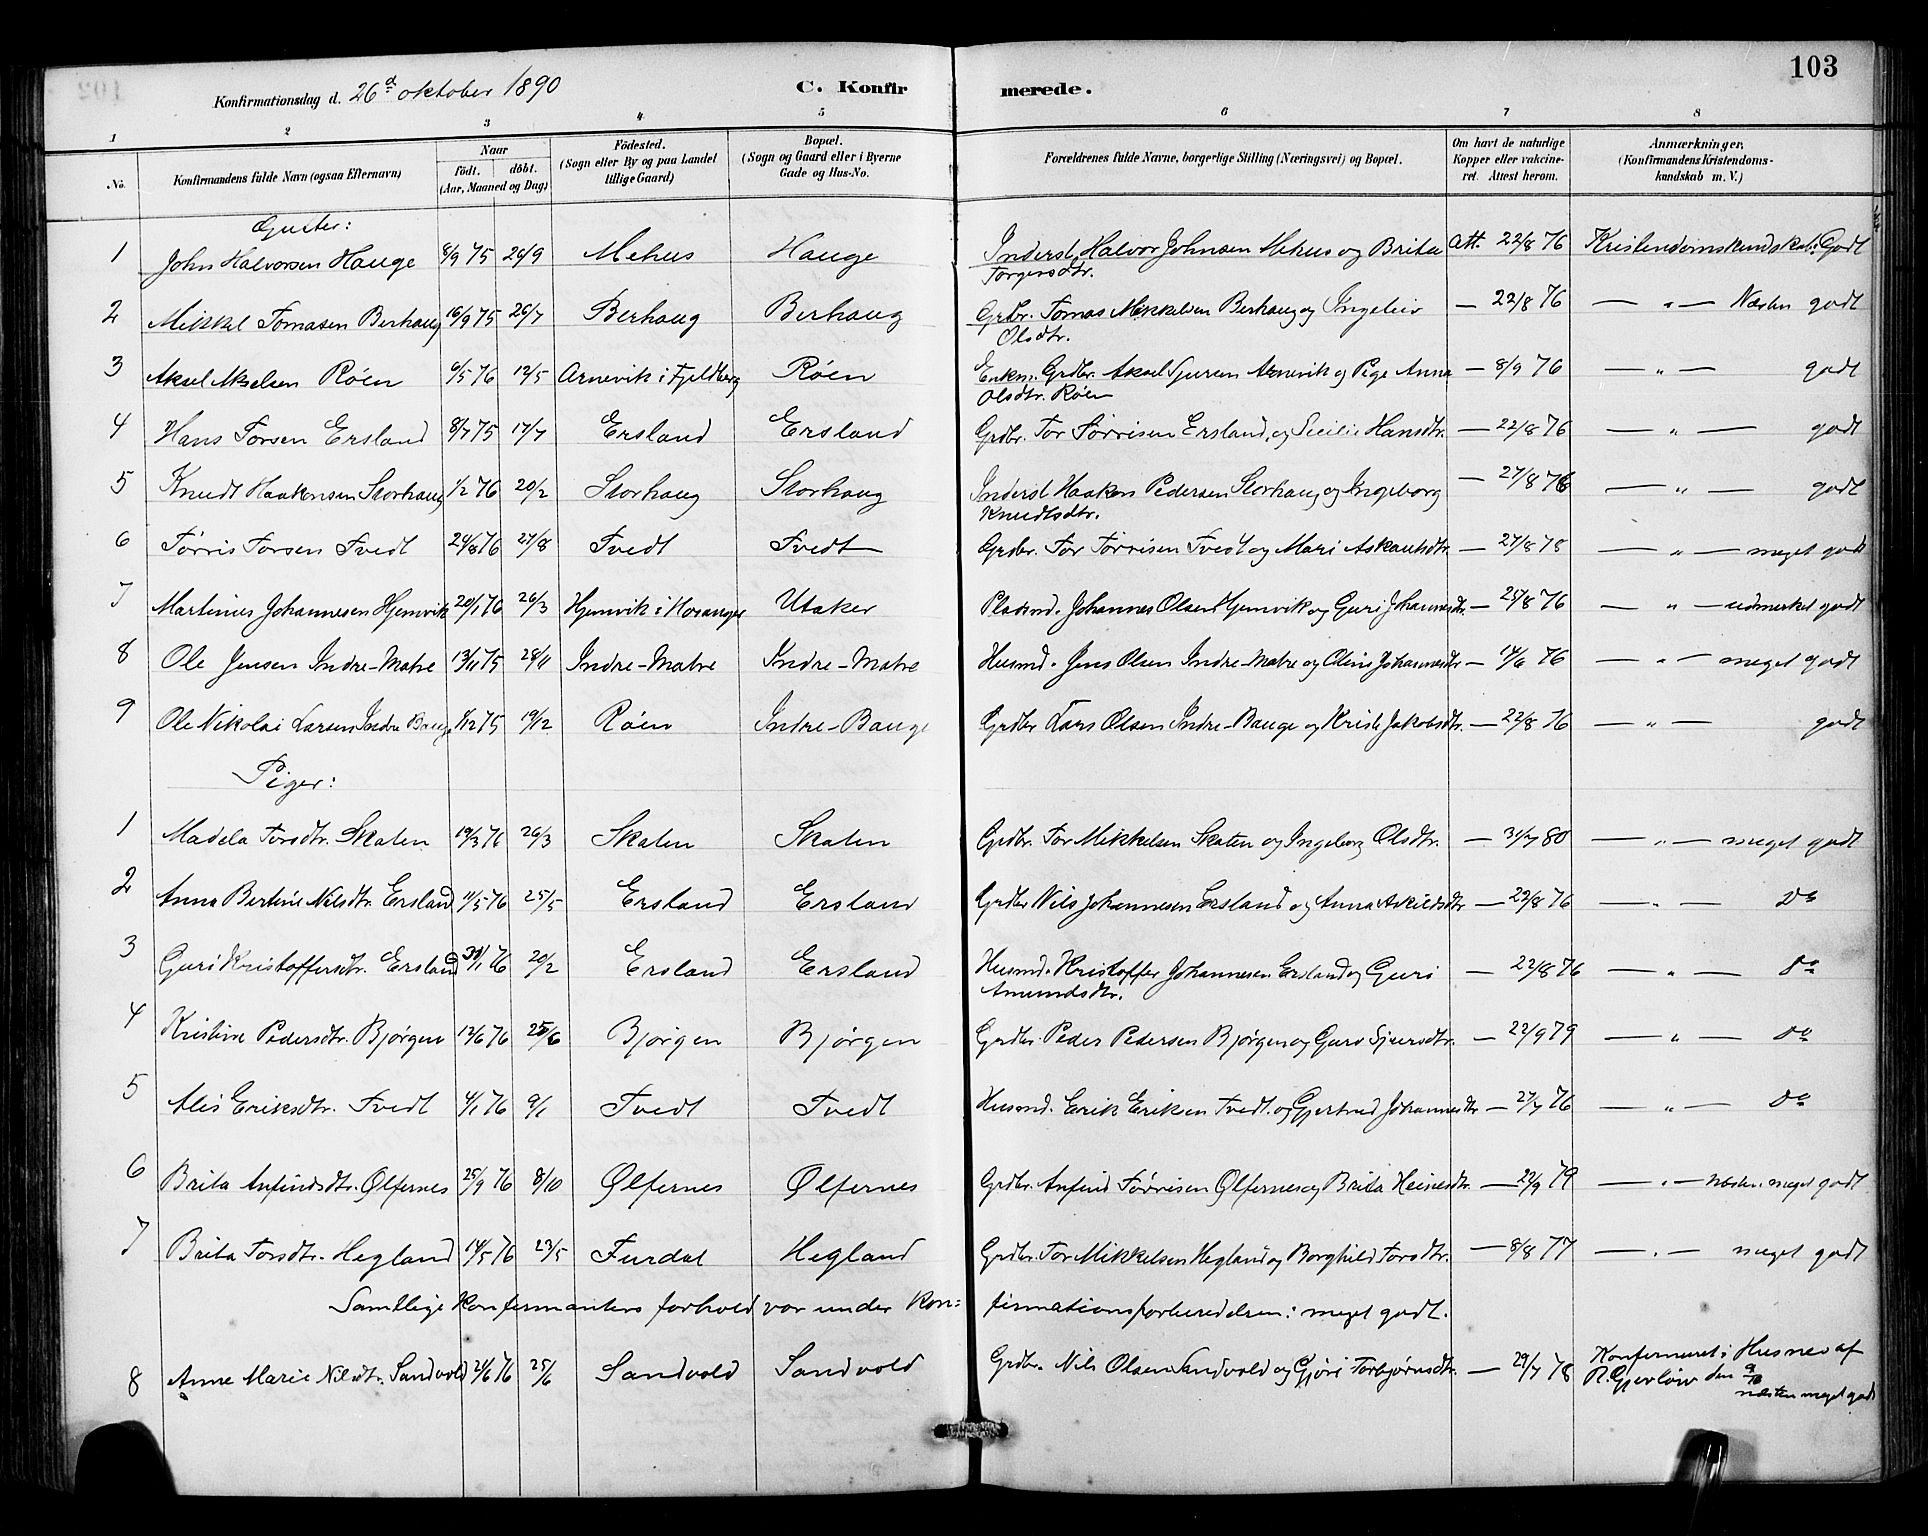 103
Konfirmationsdag d. 26de oktober 1890
C. Konfirmerede.
1 2 3 4 5 6 7 8
No. Konfirmandens fulde Navn (ogsaa Efternavn) Naar født. døbt. (Aar, Maaned og Dag) Fødested. (Sogn eller By og paa Landet tillige Gaard) Bopæl. (Sogn og Gaard eller i Byerne Gade og Hus-No. Forældrenes fulde Navne, borgerlige Stilling (Næringsvei) og Bopæl. Om havt de naturlige Kopper eller vakcineret. Attest herom. Anmærkninger, (Konfirmandens Kristendomskundskab m. V.)
Gutter:
1 John Halvorsen Hauge 8/9 75 26/9 Mehus Hauge Inderst. Halvor Johnsen Mehus og Brita Torgersdtr. Att. 22/8 76 Kristendomskundskab: Godt
2 Mikkel Tomasen Berhaug 16/9 75 26/7 Berhaug Berhaug Grdbr. Tomas Mikkelsen Berhaug og Ingeleiv Olsdtr. — 22/8 76 — " — Næsten godt
3 Aksel Akselsen Røen 6/5 76 12/5 Arnevik i Fjeldberg Røen Enkm. Grdbr. Aksel Sjursen Arnevik og Pige Anna Olsdtr. Røen — 8/9 76 — " — godt
4 Hans Torsen Ersland 8/7 75 17/7 Ersland Ersland Grdbr. Tor Tørrisen Ersland, og Sicilie Hansdtr. — 22/8 76 — " — godt
5 Knudt Haakonsen Storhaug 1/2 76 20/2 Storhaug Storhaug Inderst Haakon Pedersen Storhaug og Ingeborg Knudtsdtr. — 27/8 76 — " — godt
6 Tørris Torsen Tvedt 24/8 76 27/8 Tvedt Tvedt Grdbr. Tor Tørrisen Tvedt og Mari Askautsdtr. — 27/8 78 — " — meget godt
7 Martinus Johannesen Hjemvik 20/1 76 26/3 Hjemvik i Hosanger Utaker Pladsmd. Johannes Olsen Hjemvik og Guri Johannesdtr. — 25/8 76 — " — udmerket godt
8 Ole Jensen Indre-Matre 13/11 75 28/11 Indre-Matre Indre-Matre Husmd. Jens Olsen Indre-Matre og Oline Johannesdtr — 14/6 76 — " — meget godt
9 Ole Nikolai Larsen Indre Bauge 1/12 75 19/12 Røen Indre-Bauge Grdbr Lars Olsen Indre-Bauge og Kristi Jakobsdtr. — 22/8 76 — " — godt
Piger:
1 Madela Torsdtr. Skaten 19/3 76 26/3 Skaten Skaten Grdbr. Tor Mikkelsen Skaten og Ingeborg Olsdtr. — 31/7 80 — " — meget godt
2 Anna Bertine Nilsdtr. Ersland 11/5 76 25/5 Ersland Ersland Grdbr Nils Johannesen Ersland og Anna Askildsdtr — 22/8 76 — " — Do
3 Guri Kristoffersdtr. Ersland 30/1 76 20/2 Ersland Ersland Husmd. Kristoffer Johannesen Ersland og Guri Amundsdtr. — 22/8 76 — " — Do
4 Kristine Pedersdtr. Bjørgen 12/6 76 25/6 Bjørgen Bjørgen Grdbr. Peder Pedersen Bjørgen og Guro Sjursdtr. — 22/9 79 — " — Do
5 Alis Eriksdtr. Tvedt 4/1 76 9/1 Tvedt Tvedt Husmd. Erik Eriksen Tvedt. og Gjertrud Johannesdtr — 27/7 76 — " — Do
6 Brita Anfindsdtr. Ølfernes 25/9 76 8/10 Ølfernes Ølfernes Grdbr. Anfind Tørrisen Ølfernes og Brita Heinesdtr. — 22/9 79 — " — næsten meget godt
7 Brita Torsdtr. Hegland 14/5 76 23/5 Furdal Hegland Grdbr. Tor Mikkelsen Hegland og Borghild Torsdtr. — 8/8 77 — " — meget godt
Samtlige konfirmanters forhold var under kon=firmationsforberedelsen: meget godt.
8 Anne Marie Nilsdtr. Sandvold 24/6 76 25/6 Sandvold Sandvold Grdbr. Nils Olsen Sandvold og Gjøri Torbjørnsdtr. — 29/7 78 Konfirmeret i Husnes af R. Gjerløw den næsten meget godt